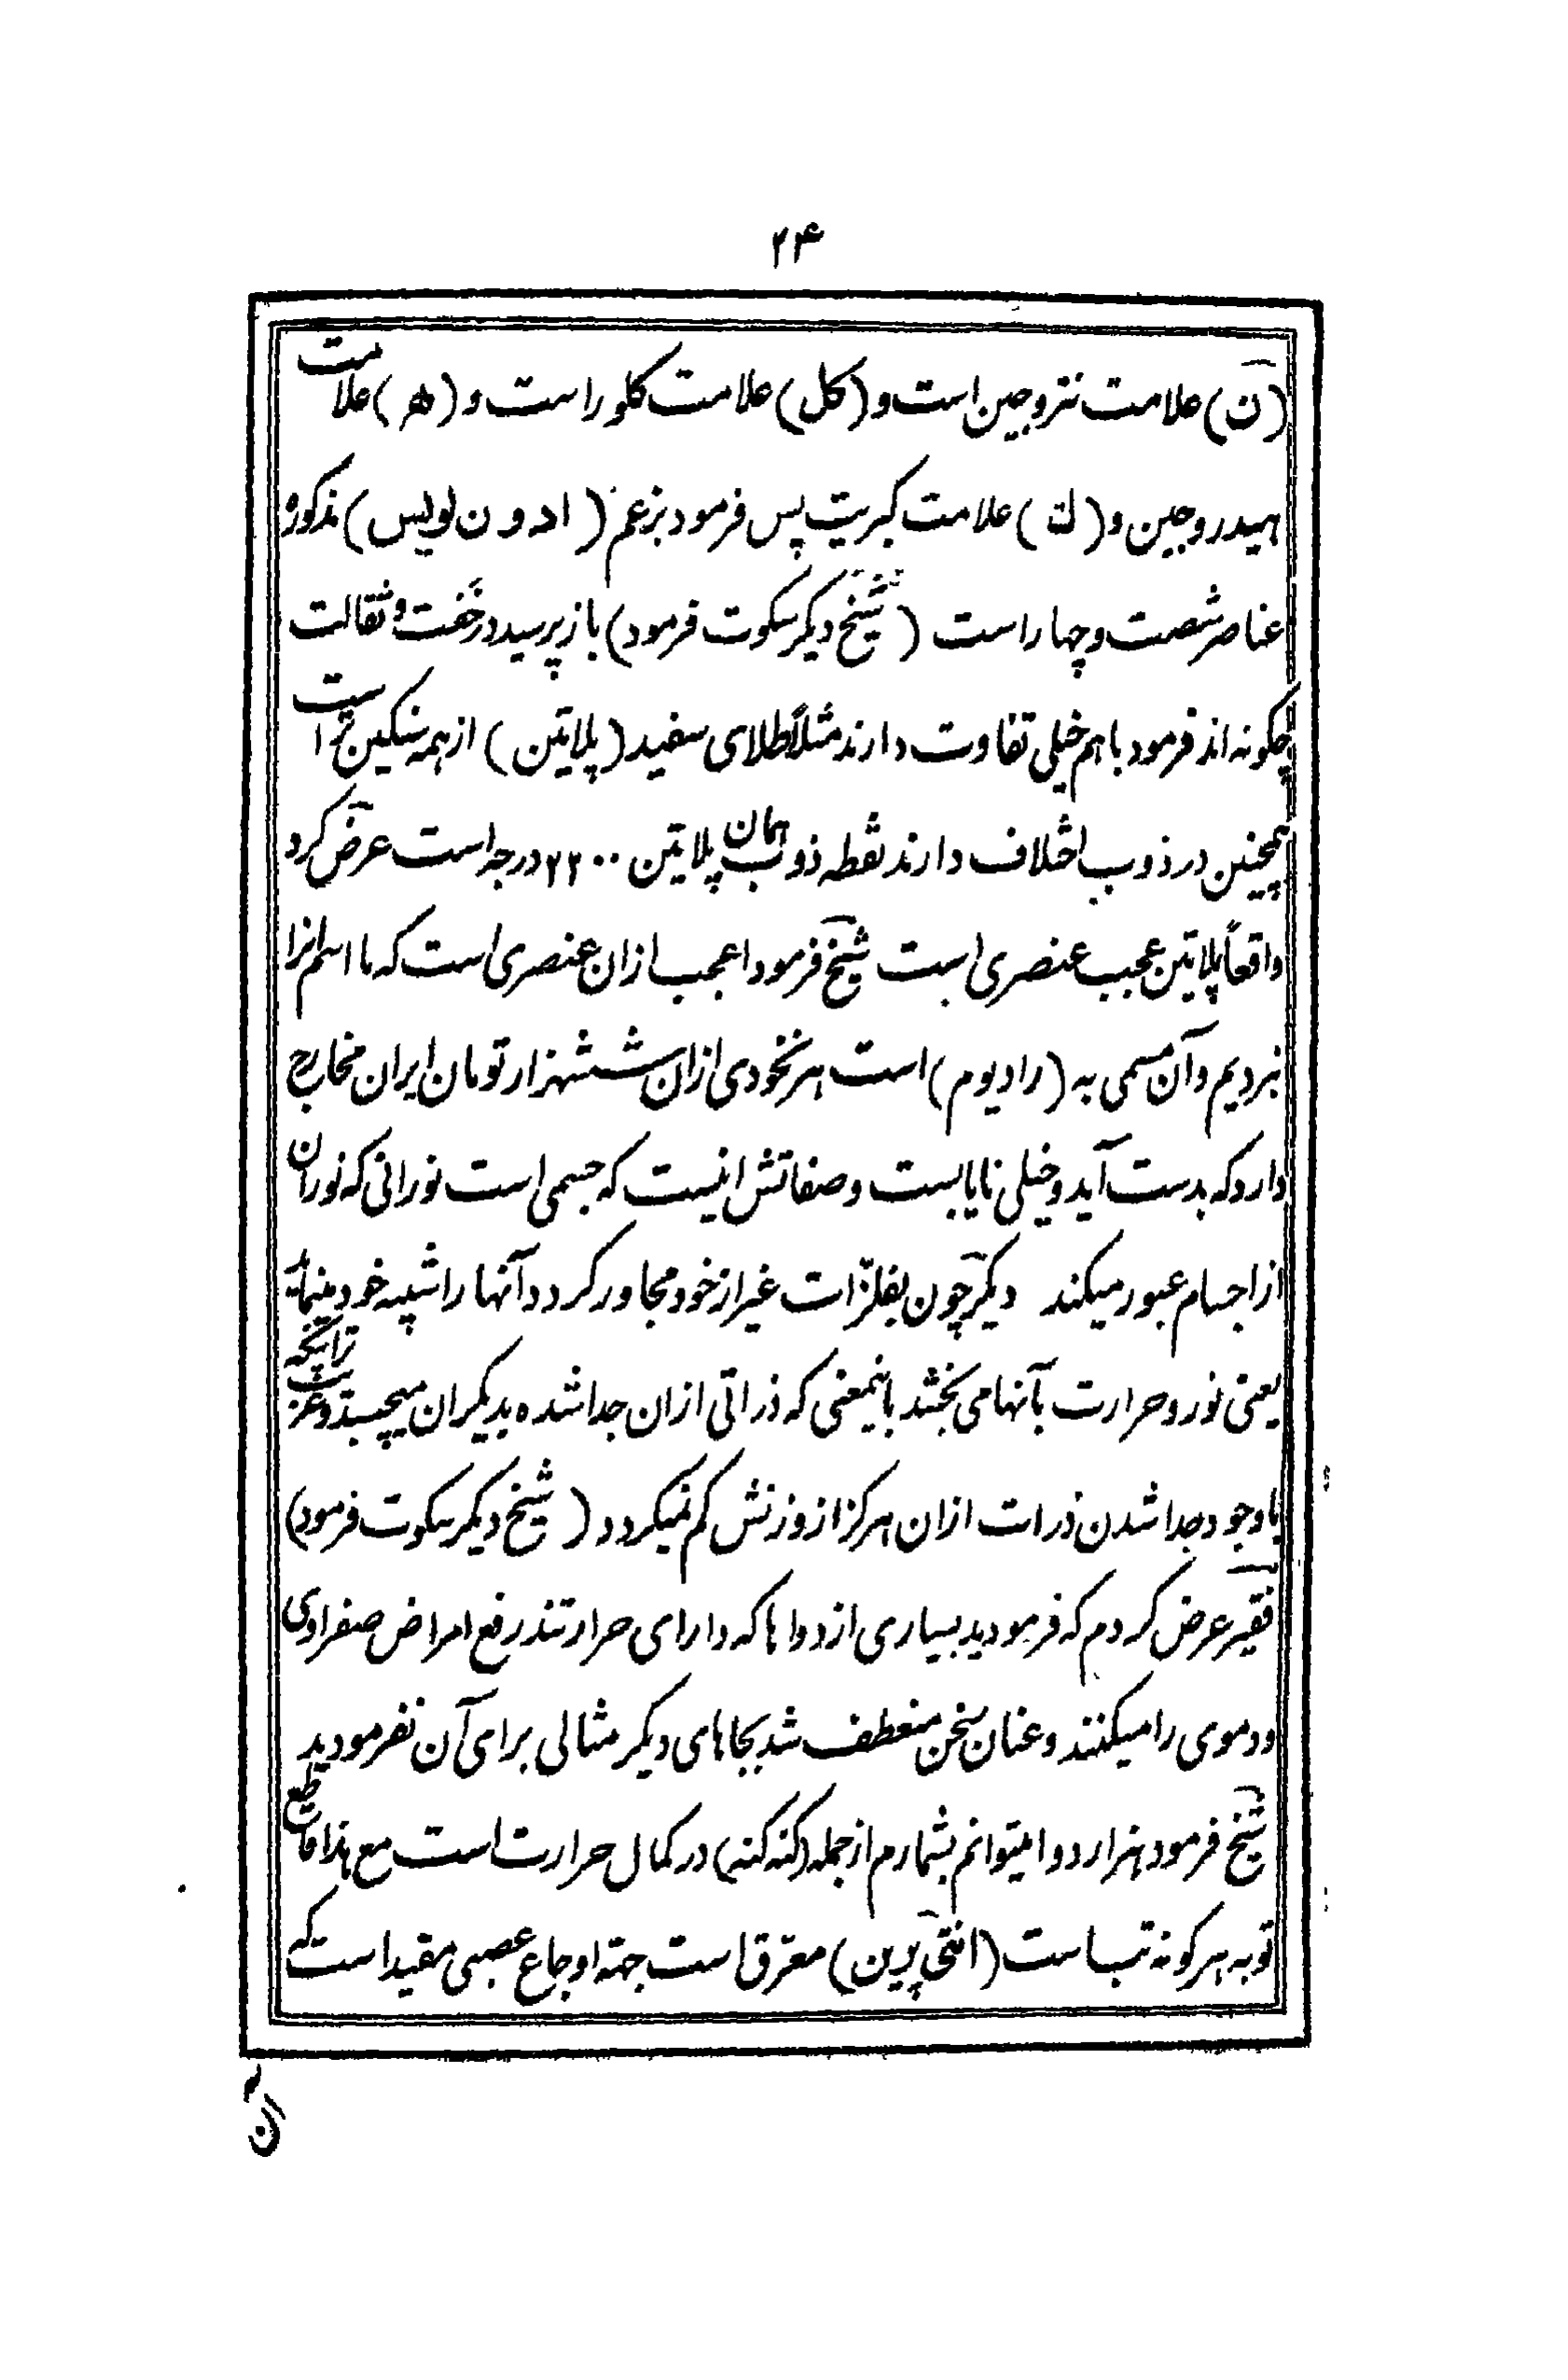 ۲۴
(ن) علامت نتروجین است و (کل) علامت کلور است و (ه) علامت
هیدروجین و (ک) علامت کبریت پس فرمود بزعم (ادون لویس) مذکور
عناصر شصت و چهار است (شیخ دیگر سکوت فرمود) باز پرسید در خفت و ثقالت
چگونه اند فرمود با هم خیلی تفاوت دارند مثلاً طلای سفید (پلاتین) از همه سنگین تر است
همچنین در ذوب اختلاف دارند نقطه ذوب همان پلاتین ۲۲۰۰ درجه است عرض کرد
واقعاً پلاتین عجب عنصری است شیخ فرمود اعجب ازان عنصری است که ما اسم انرا
نبردیم و آن مسمی به (رادیوم) است هر نخودی ازان ششهزار تومان ایران مخارج
دارد که بدست آید و خیلی نایابست و صفاتش اینست که جسمی است نورانی که نوران
از اجسام عبور میکند دیگر چون بفلزّات غیر از خود مجاور گردد آنها را شبیه خود مینماید
یعنی نور و حرارت بآنها می بخشد باینمعنی که ذراتی ازان جدا شده بدیگران میچسبد و غریب ترآنکه
با وجود جدا شدن ذرات ازان هرگز از وزنش کم نمیگردد (شیخ دیگر سکوت فرمود)
فقیر عرض کردم که فرمودید بسیاری از دواها که دارای حرارتند رفع امراض صفراوی
و دموی را میکنند و عنان سخن منعطف شد بجاهای دیگر مثالی برای آن نفرمودید
شیخ فرمود هزار دوا میتوانم بشمارم از جمله (کنه کنه) در کمال حرارت است مع هذا قاطع
توبه هرگونه تب است (انتی پرین) معرّق است جهته اوجاع عصبی مفید است که